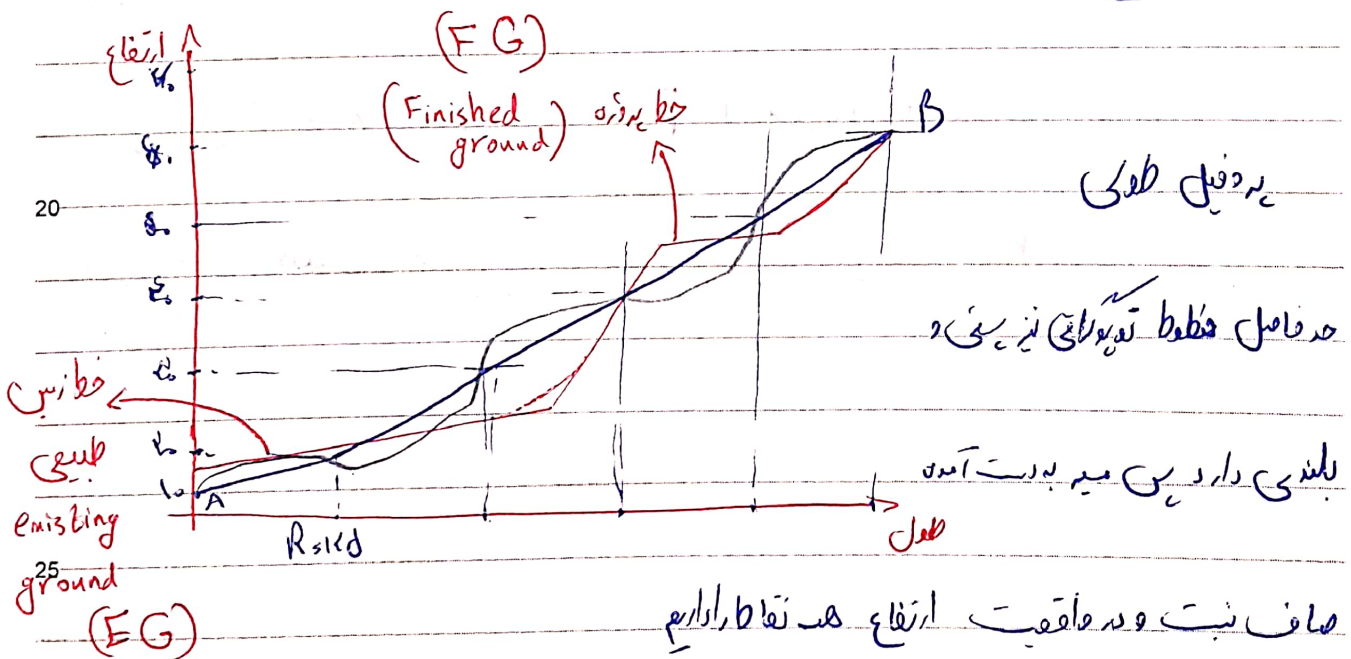 (FG)
ارتفاع
(Finished
ground)
خط پروژه
B
پروفیل طولی
20
۵۰
۴۰
حد فاصل خطوط توپوگرافی نیز پستی و
۳۰
خط زمین
طبیعی
۲۰
۱۰
A
بلندی دارد پس مسیر به دست آمده
طول
existing
ground
25
(EG)
صاف نیست و در واقعیت ارتفاع همه نقاط را داریم